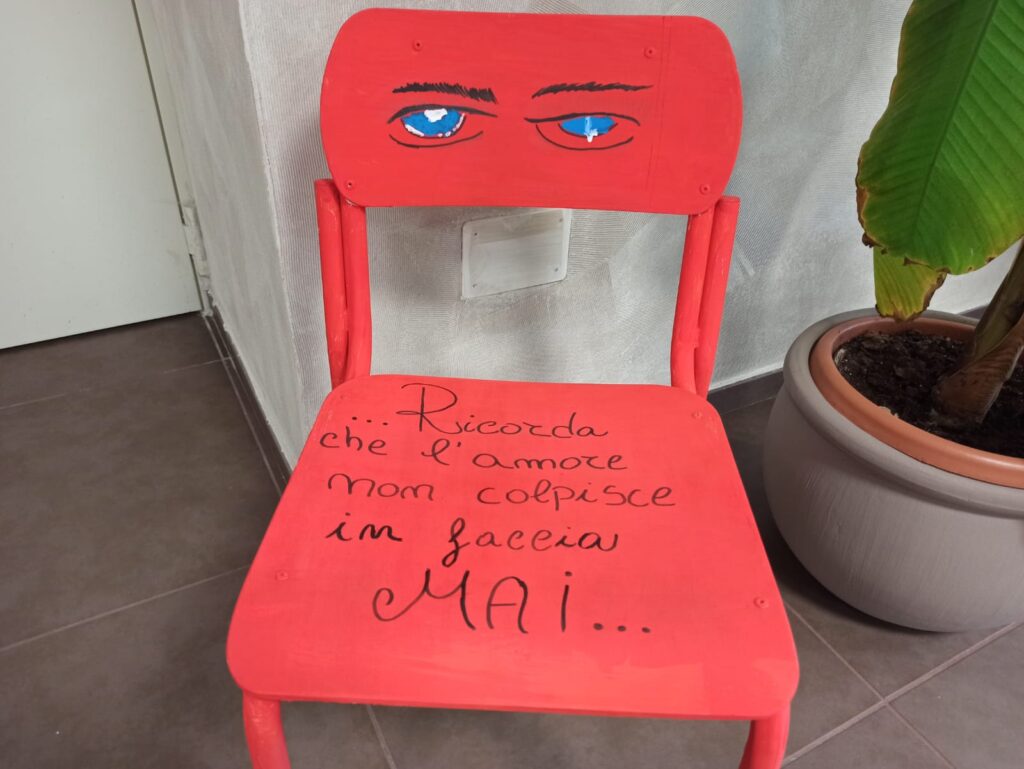 ... Ricorda
che l'amore
non colpisce
in faccia
MAi...